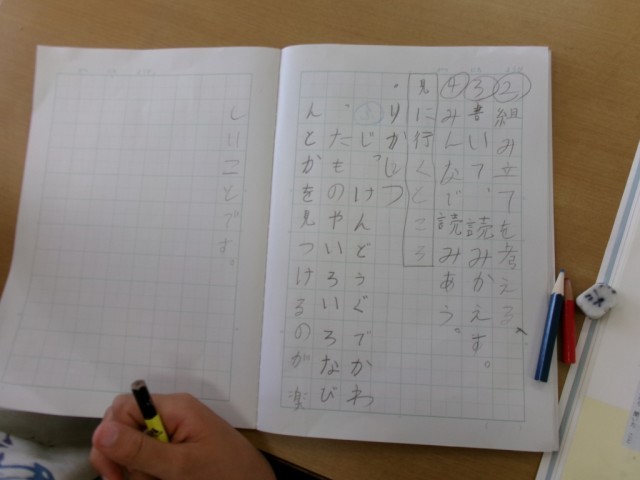 ②組み立てを考える。
③書いて、読みかえす。
④みんなで読みあう。
見に行くところ
・りかしつ
じっけんどうぐでかわ
ったものやいろいろなび
んとかを見つけるのが楽
しいことです。